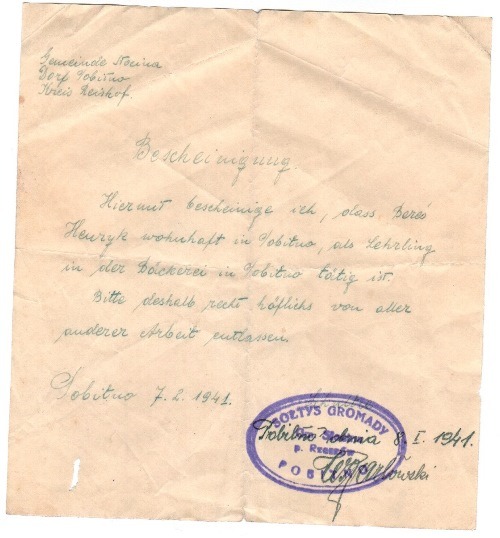 Gemeinde Słocina
Dorf Pobitno
Kreis Reishof.
Bescheinigung.
Hiermit bescheinige ich, dass Bereś
Henryk wohnhaft in Pobitno, als Lehrling
in der Bäckerei in Pobitno tätig ist.
Bitte deshalb recht höflichs von aller
anderer Arbeit entlassen.
Pobitno 7.2.1941.
SOŁTYS GROMADY
Pobitno dnia 8.I.1941.
p. Rzeszów